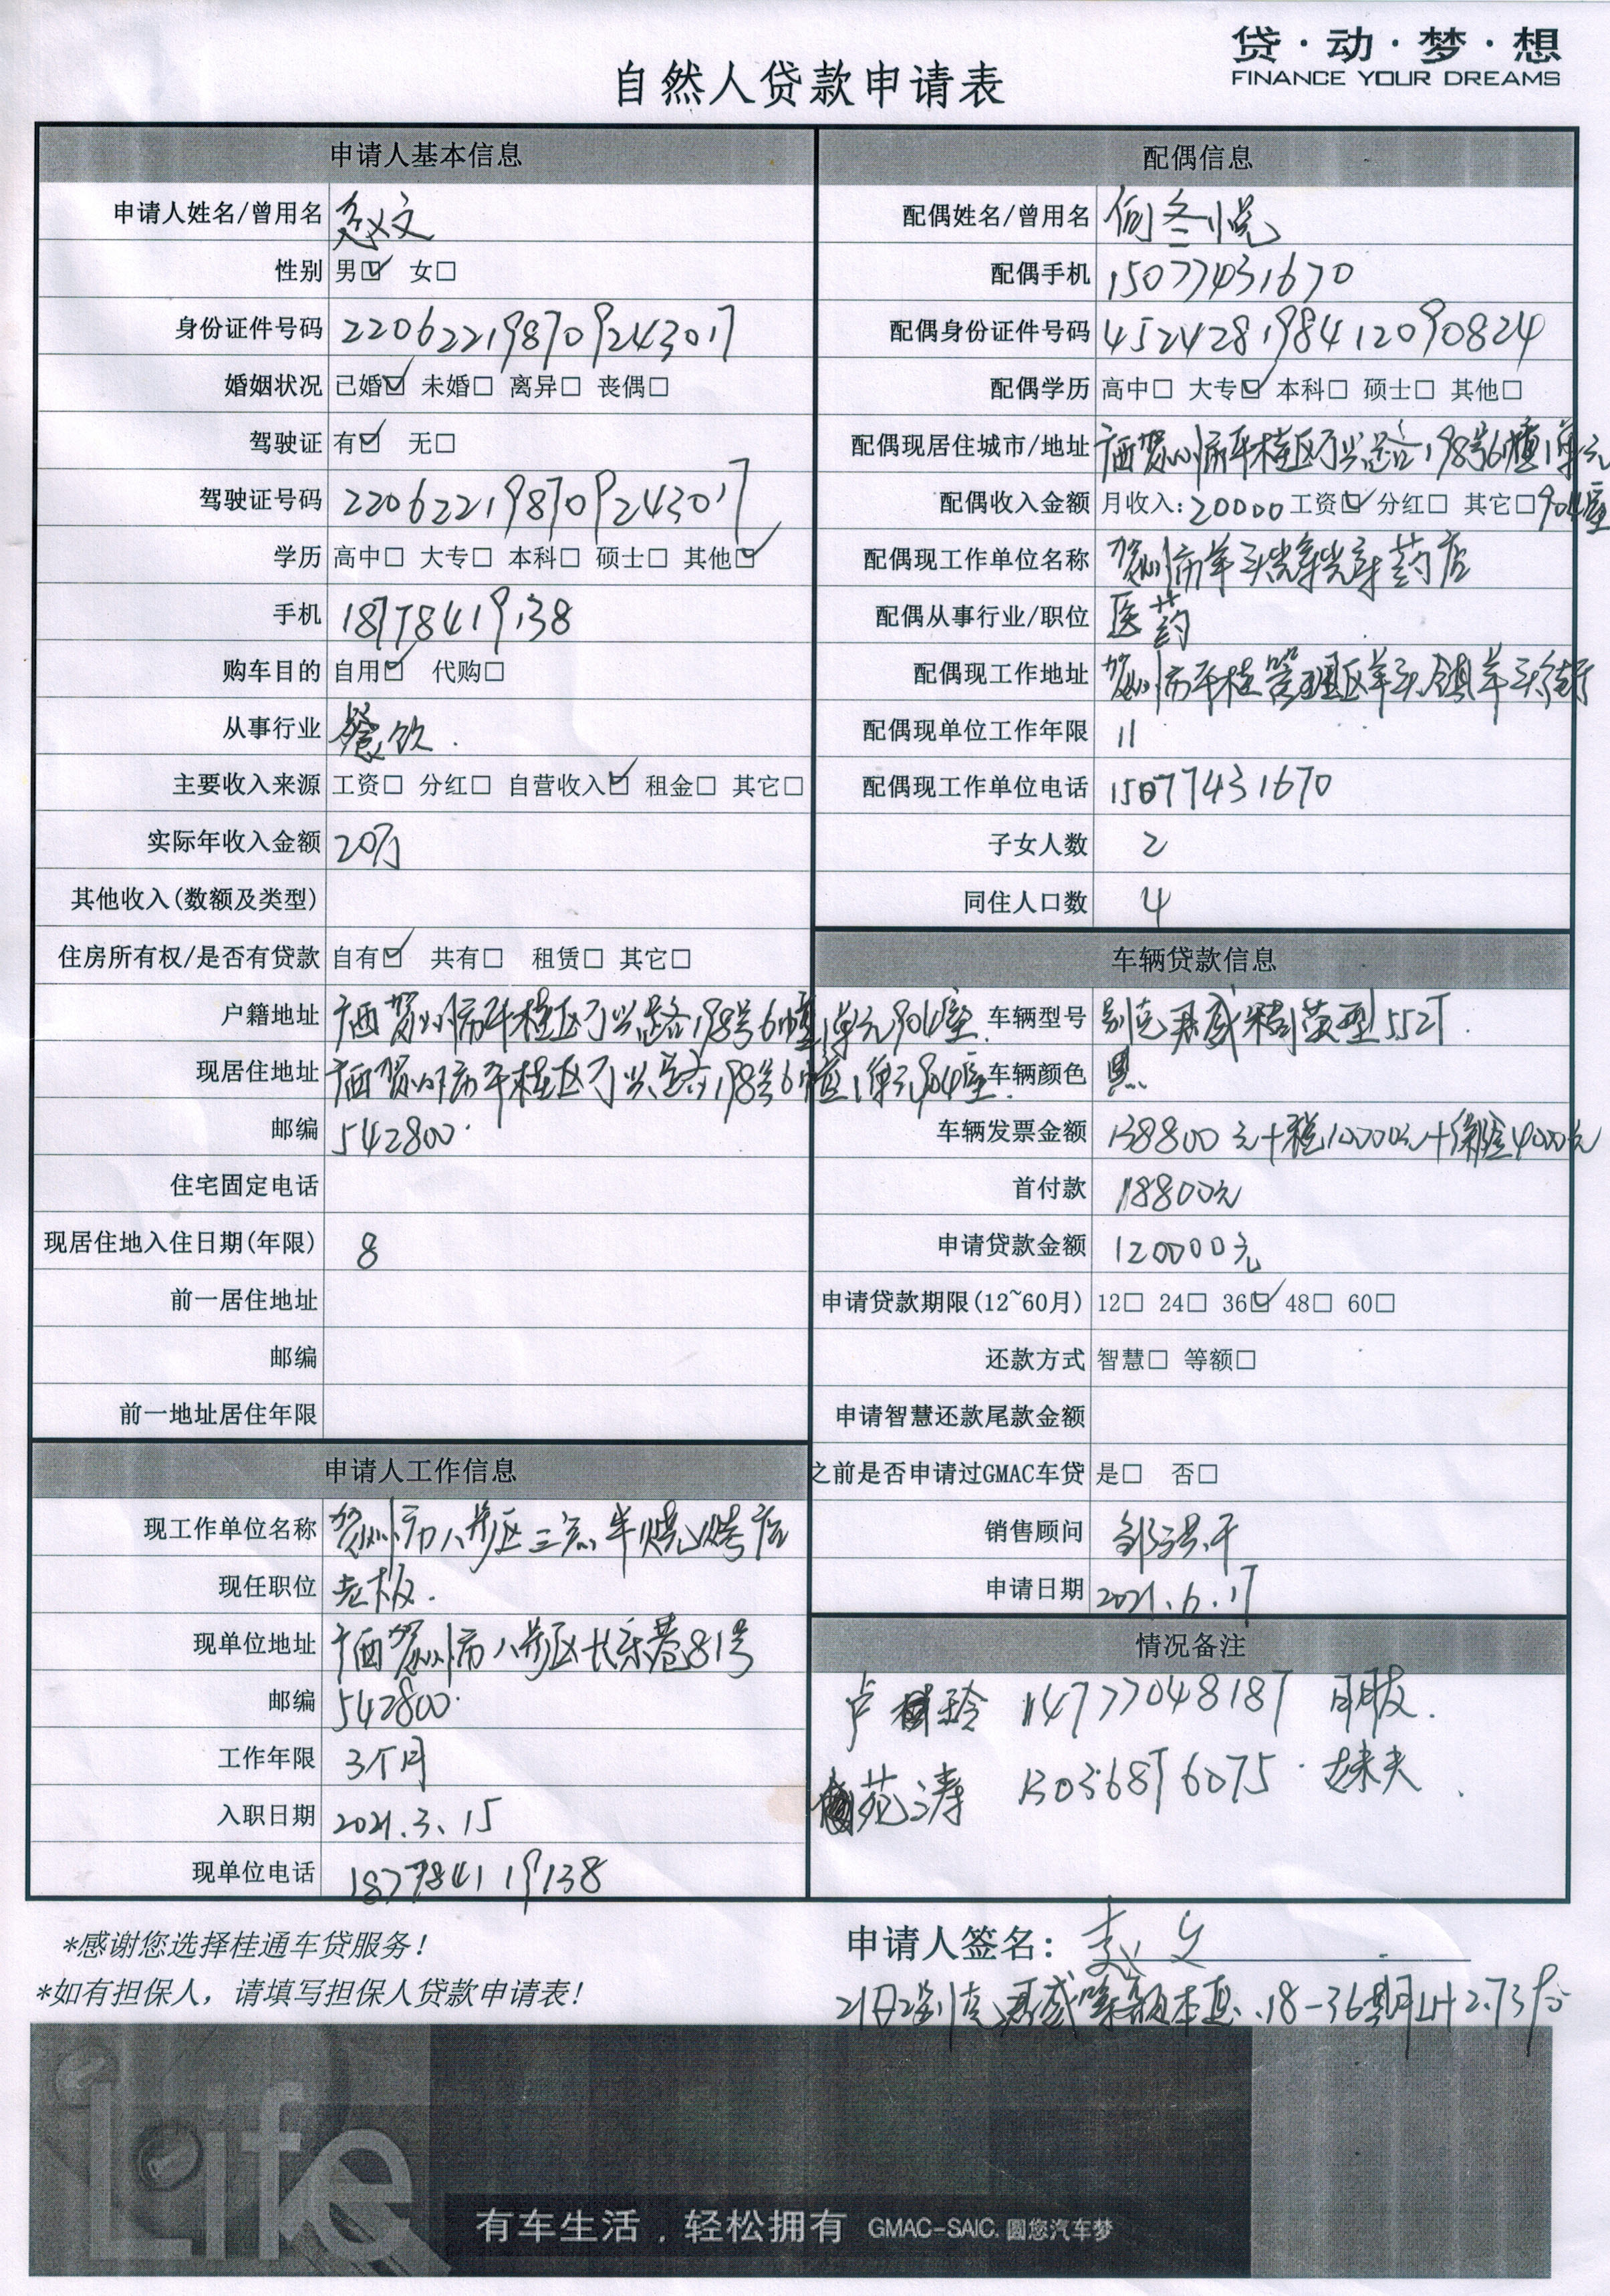 贷·动·梦·想
FINANCE YOUR DREAMS
自然人贷款申请表
申请人基本信息
申请人姓名/曾用名 赵文
性别 男☑ 女□
身份证件号码 220622198709243017
婚姻状况 已婚☑ 未婚□ 离异□ 丧偶□
驾驶证 有☑ 无□
驾驶证号码 220622198709243017
学历 高中□ 大专□ 本科□ 硕士□ 其他☑
手机 18778419138
购车目的 自用☑ 代购□
从事行业 餐饮.
主要收入来源 工资□ 分红□ 自营收入☑ 租金□ 其它□
实际年收入金额 20万
其他收入(数额及类型)
住房所有权/是否有贷款 自有☑ 共有□ 租赁□ 其它□
户籍地址 广西贺州市平桂区兴路198号6幢1单元904室.
现居住地址 广西贺州市平桂区兴路198号6幢1单元904室.
邮编 542800.
住宅固定电话
现居住地入住日期(年限) 8
前一居住地址
邮编
前一地址居住年限
申请人工作信息
现工作单位名称 贺州市八步区三羊烧烤店
现任职位 老板.
现单位地址 广西贺州市八步区长乐巷81号
邮编 542800.
工作年限 3个月
入职日期 2021.3.15
现单位电话 18778419138
配偶信息
配偶姓名/曾用名 冬悦
配偶手机 15077431670
配偶身份证件号码 452428198412090824
配偶学历 高中□ 大专☑ 本科□ 硕士□ 其他□
配偶现居住城市/地址 广西贺州市平桂区兴路198号6幢1单元904室
配偶收入金额 月收入:20000 工资☑ 分红□ 其它□
配偶现工作单位名称 贺州市羊头药店
配偶从事行业/职位 医药
配偶现工作地址 贺州市平桂管理区羊头镇羊头街
配偶现单位工作年限 11
配偶现工作单位电话 15077431670
子女人数 2
同住人口数 4
车辆贷款信息
车辆型号 别克君威精英型552T.
车辆颜色 黑.
车辆发票金额 138800元+税10000元+保险4000元
首付款 18800元
申请贷款金额 120000元
申请贷款期限(12~60月) 12□ 24□ 36☑ 48□ 60□
还款方式 智慧□ 等额□
申请智慧还款尾款金额
之前是否申请过GMAC车贷 是□ 否□
销售顾问 邹
申请日期 2021.6.17
情况备注
卢玲 14777048187 朋友.
苑涛 13036876075. 妹夫.
*感谢您选择桂通车贷服务!
*如有担保人，请填写担保人贷款申请表!
申请人签名: 赵文
别克君威等额本息.18-36期
Life
有车生活，轻松拥有 GMAC-SAIC.圆您汽车梦